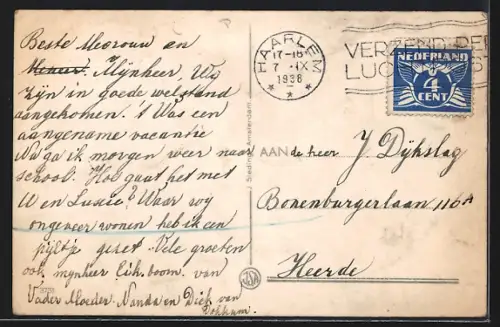 Beste Mevrouw en
Meneer. Mijnheer, Wij
zijn in goede welstand
aangekomen. 't Was een
aangename vacantie
Nu ga ik morgen weer naar
school. Hoe gaat het met
U en Lussie? Waar wij
ongeveer wonen heb ik een
pijltje gezet. Vele groeten
ook mijnheer Eikboom. van
Vader Moeder. Nanda en Dick van
Dokkum.
HAARLEM
17-18
7 IX
1938
VERZEND PER
LUC
NEDERLAND
4
CENT
AAN de heer J. Dijkslag
Bonenburgerlaan 116A
Heerde